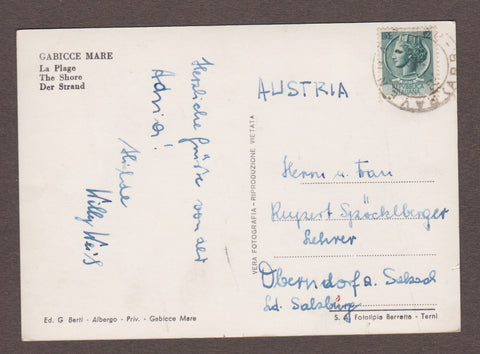 GABICCE MARE
La Plage
The Shore
Der Strand
Herzliche Grüße von der
Adria!
Hilde
Willy Weiß
Ed. G. Berti - Albergo - Priv. - Gabicce Mare
VERA FOTOGRAFIA - RIPRODUZIONE VIETATA
AUSTRIA
Herrn u. Frau
Rupert Spöcklberger
Lehrer
Oberndorf a. Salzach
Ld. Salzburg
S. Fototipia Berretta - Terni